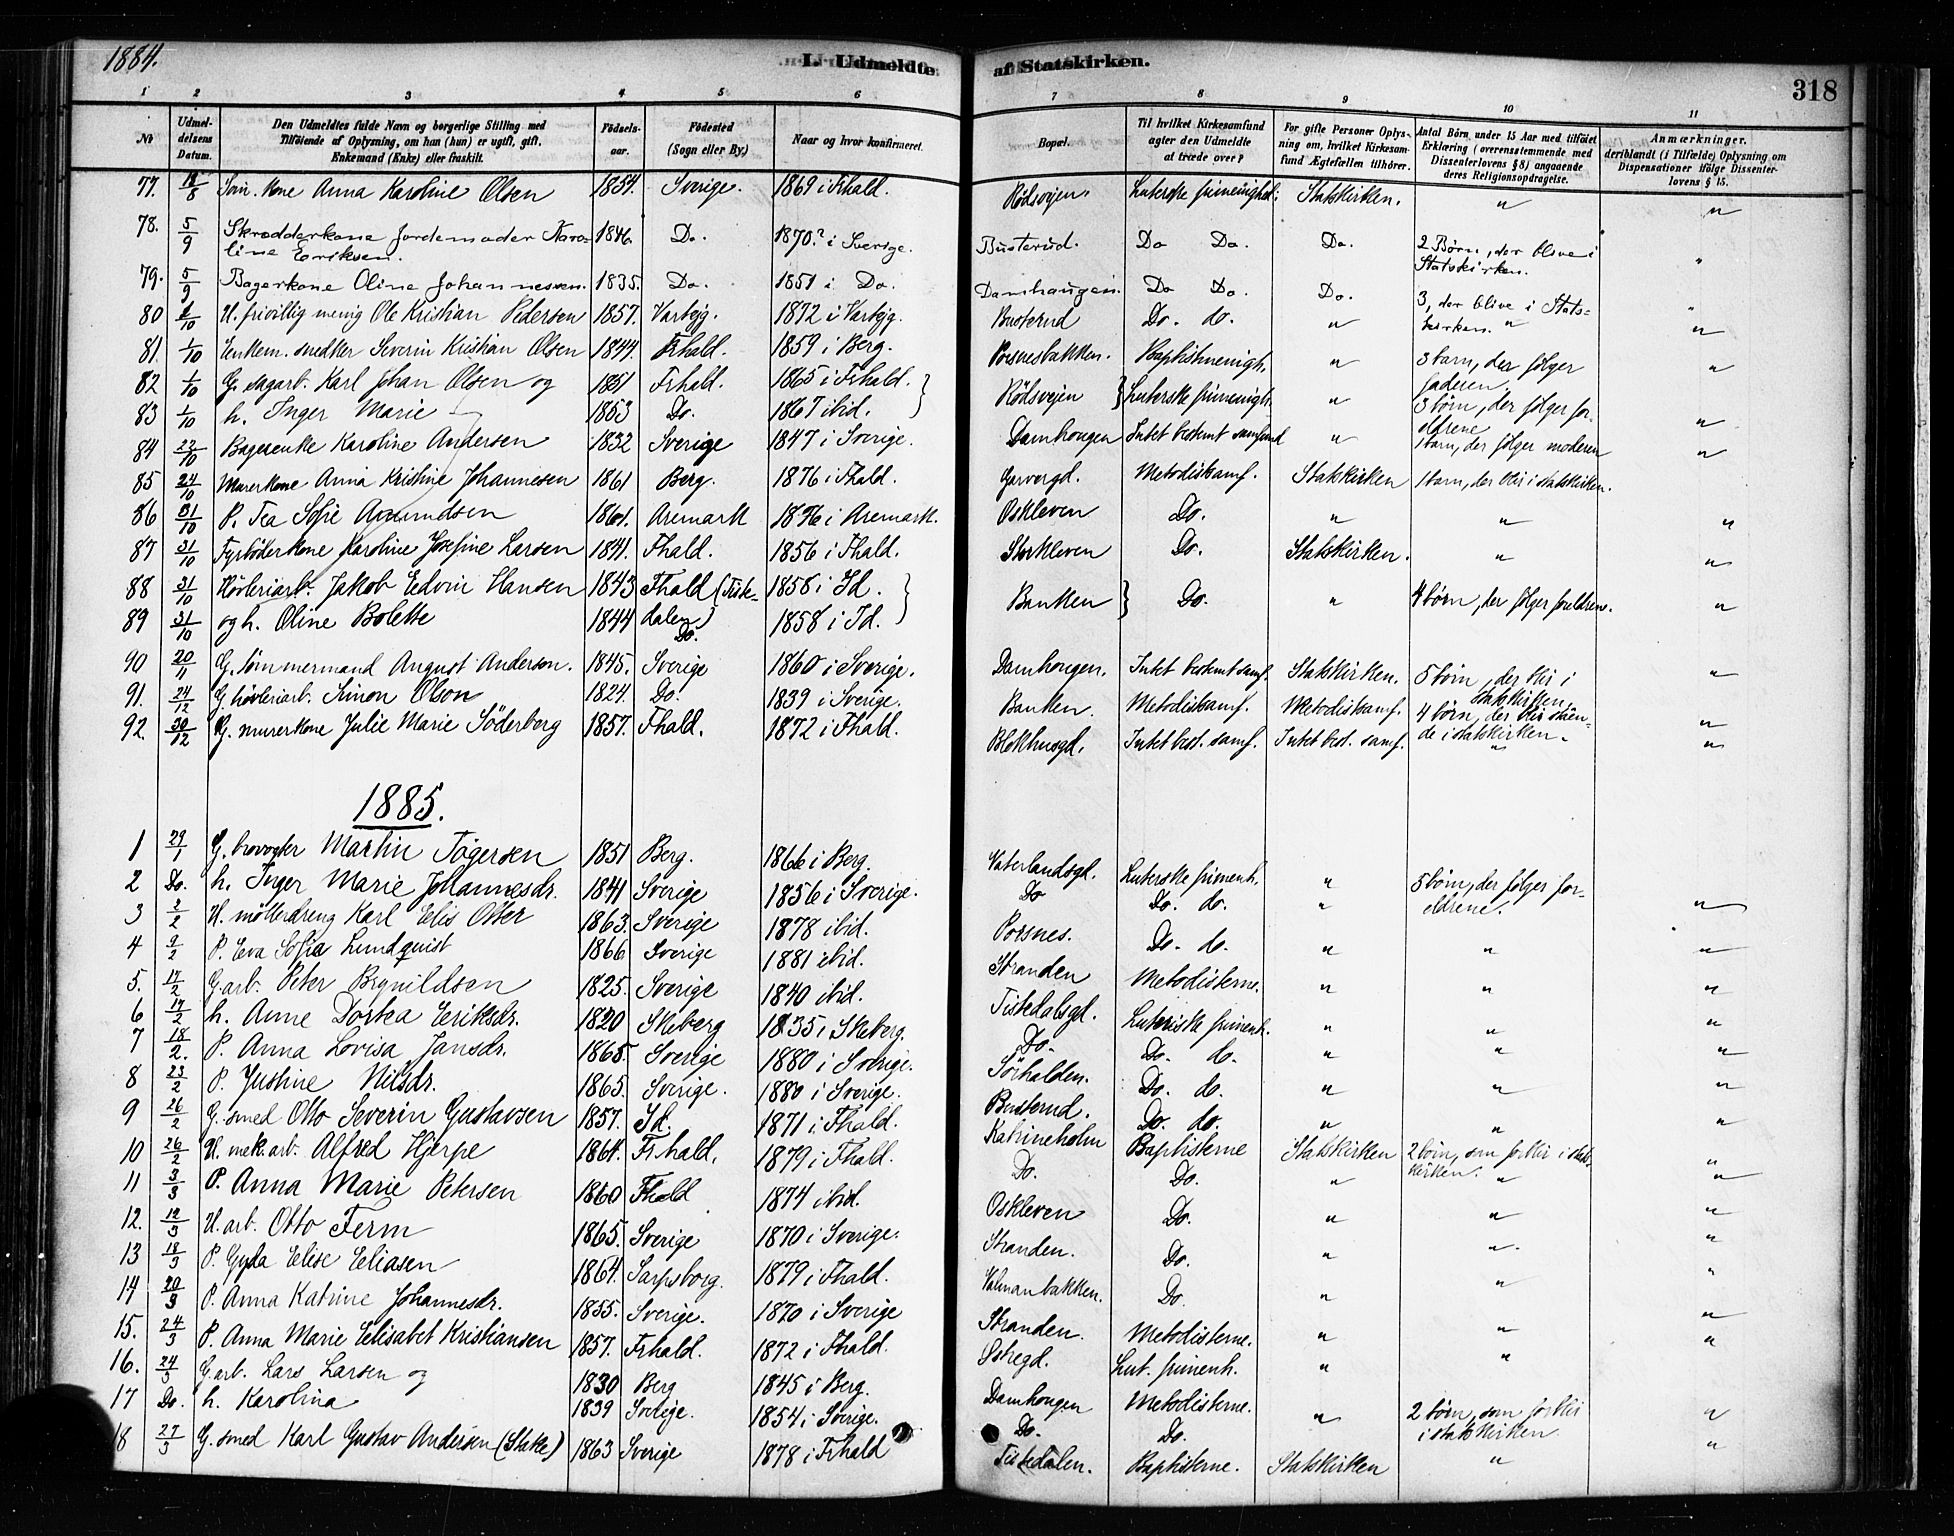 1884.
I. Udmeldte
af Statskirken.
318
1 2 3 4 5 6 7 8 9 10 11
No
Udmel-
delsens
Datum.
Den Udmeldtes fulde Navn og borgerlige Stilling med
Tilföiende af Oplysning, om han (hun) er ugift, gift,
Enkemand (Enke) eller fraskilt.
Födsels-
aar.
Födested
(Sogn eller By.)
Naar og hvor konfirmeret.
Bopæl.
Til hvilket Kirkesamfund
agter den Udmeldte
at træde over?
For gifte Personer Oplys-
ning om, hvilket Kirkesam-
fund Ægtefællen tilhörer.
Antal Börn under 15 Aar med tilföiet
Erklæring (overensstemmende med
Dissenterlovens § 8) angaaende
deres Religionsopdragelse.
Anmerkninger.
deriblandt (i Tilfælde) Oplysning om
Dispensationer ifölge Dissenter-
lovens § 15.
77. Kone Anna Karoline Olsen 1854. Sverige. 1869 i Frhald. Rödsvejen. Luterske frimenighed. Statskirken. " "
78. 5/9 Skrædderkone Jordemoder Karo- 1846. Do. 1870? i Sverige. Busterud. Do Do. Do. 2 Børn, der blive i
line Eriksen. Statskirken. "
79. 5/9 Bagerkone Oline Johannessen. 1835. Do. 1851 i Do. Damhaugen. Do Do. Do. 3, der blive i Stats-
kirken. "
80 /10 U. frivillig menig Ole Kristian Pedersen 1857. Varbjg. 1872 i Varbjg. Busterud Do. do. " " "
81. 1/10 Enkem. snedker Severin Kristian Olsen 1844. Frhald. 1859 i Berg. Porsnesbakken. Baptistmenigh. " 3 barn, der følger
faderen. "
82 1/10 G. sagarb. Karl Johan Olsen og 1851 Frhald. 1865 i Frhald. } Rödsvejen } Luterske frimenigh. " 3 börn, der følger for-
83 1/10 h. Inger Marie 1853 Do. 1867 ibid. ældrene "
84 22/10 Bagerenke Karoline Andersen 1832 Sverige 1847 i Sverige. Damhougen Intet bestemt samfund " 1 barn, der følger moderen "
85 24/10 Murerkone Anna Kristine Johannesen 1861 Berg. 1876 i Fhald. Garvergd. Metodistsamf. Statskirken 1 barn, der blir i statskirken.
86 31/10 P. Tea Sofie Amundsen 1861. Aremark 1876 i Aremark. Oskleven Do. " " "
87 31/10 Fyrböderkone Karoline Josefine Larsen 1841. Fhald. 1856 i Fhald. Storkleven Do. Statskirken. " "
88 31/10 Høvleriarb. Jakob Edvin Hansen 1843 Fhald (Tiste- 1858 i Id. } Banken } Do. " 4 børn, der følger forældrene. "
89 31/10 og h. Oline Bolette 1844 dalen) 1858 i Id.
Do.
90 20/11 G. tømmermand August Andersen. 1845. Sverige 1860 i Sverige. Damhougen. Intet bestemt samf. Statskirken. 5 børn, der blir i "
statskirken.
91. 24/12 G. høvleriarb. Simon Olson 1824. Do. 1839 i Sverige. Banken. Metodistsamf. Metodistsamf. 4 børn, der blir stáen-
de i statskirken. "
92. 30/12 G. murerkone Julie Marie Söderberg 1857. Fhald. 1872 i Fhald. Blokhusgd. Intet best. samf. Intet best. samf. " "
1885.
1 29/1 G. brovogter Martin Tögersen 1851 Berg. 1866 i Berg. Vaterlandsgd. Luterske frimenh. " 5 börn, der følger for-
2 Do. h. Inger Marie Johannesdr. 1841 Sverige 1856 i Sverige. Do Do. do. " ældrene. "
3 2/2 U. møllerdreng Karl Elis Otter 1863. Sverige 1878 ibid. Porsnes. Do. do. " " "
4 9/2 P. Eva Sofia Lundquist 1866 Sverige 1881 ibid. Stranden Metodisterne. " " "
5. 17/2 G. arb. Peter Brynildsen 1825. Sverige 1840 ibid. Tistedalsgd. Luteriske frimenh. " " "
6 17/2 h. Anne Dortea Eriksdr. 1820 Skeberg 1835 i Skeberg. Do. Do. do. " " "
7 18/2. P. Anna Lovisa Jansdr. 1865. Sverige 1880 i Sverige. Sørhalden. Do. do. " " "
8 23/2 P. Justine Nilsdr. 1865. Sverige. 1880 i Sverige. Busterud. Do. do. " " "
9 26/2 G. smed Otto Severin Gustavsen 1857. Id. 1871 i Fhald. Katrineholm Baptisterne Statskirken 2 børn, som forblir i stats-
kirken. "
10 26/2 U. mek. arb. Alfred Hjerpe 1864. Frhald. 1879 i Fhald. Do. Do. " " "
11 3/3 P. Anna Marie Petersen 1860 Fhald 1874 ibid. Oskleven Do. " " "
12. 12/3 U. arb. Otto Ferm 1865. Sverige 1870 i Sverige. Stranden. Do. " " "
13 18/3 P. Gyda Elise Eliasen 1864. Sarpsborg. 1879 i Fhald. Valmanbakken. Do. " " "
14 20/3 P. Anna Katrine Johannesdr. 1855. Sverige. 1870 i Sverige Stranden. Metodisterne. " " "
15. 24/3 P. Anna Marie Elisabet Kristiansen 1857. Frhald. 1872 i Fhald. Lut. frimenh. " " "
16. 24/3 G. arb. Lars Larsen og 1830 Berg 1845 i Berg. Damhougen Metodisterne. " 2 børn, som forblir "
17 Do. h. Karolina 1839 Sverige. 1854 i Sverige. Do. Do. i statskirken "
18 27/3 G. smed Karl Gustav Andersen (Stake) 1863 Sverige 1878 i Frhald Tistedalen. Baptisterne. Statskirken "